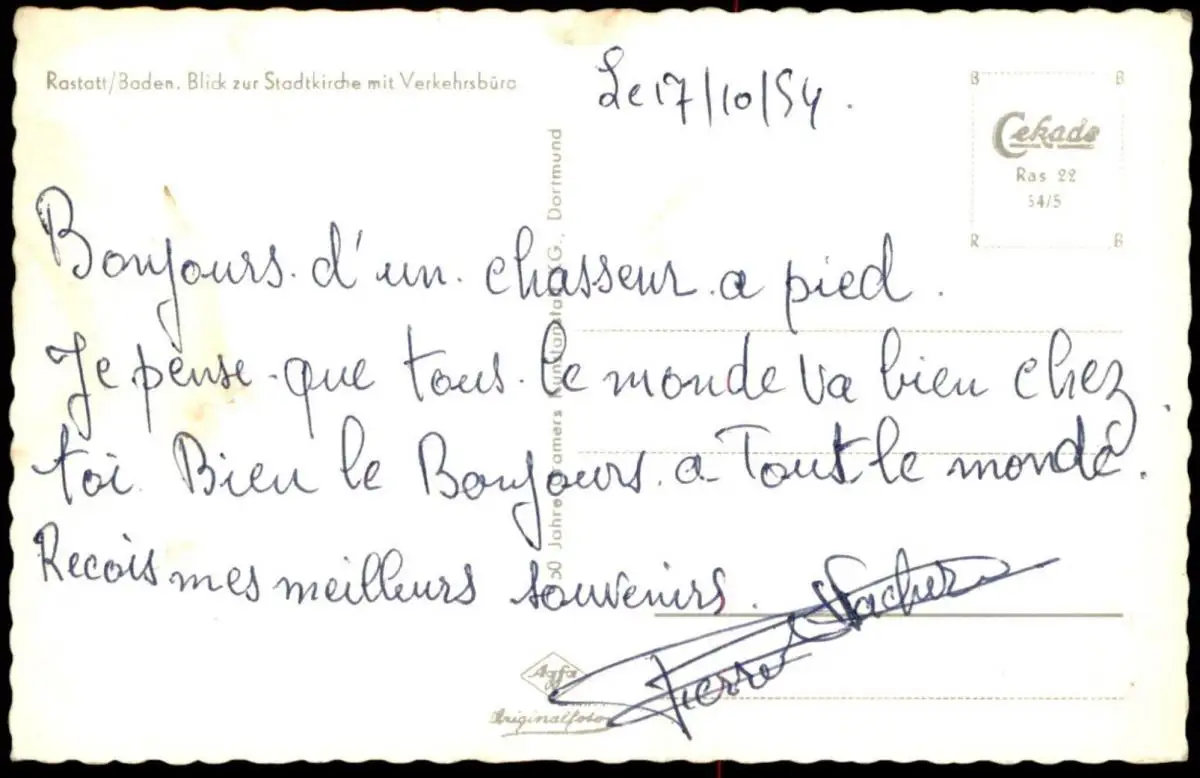 Rastatt/Baden. Blick zur Stadtkirche mit Verkehrsbüro
Le 17/10/54.
Cekade
Ras 22
54/5
B
B
R
B
Bonjours d'un chasseur a pied.
Je pense que tous le monde va bien chez
toi. Bien le Bonjours a Tout le monde.
Recois mes meilleurs souvenirs.
Pierre
50 Jahre Cramers Kunstanstalt KG., Dortmund
Agfa
Originalfoto